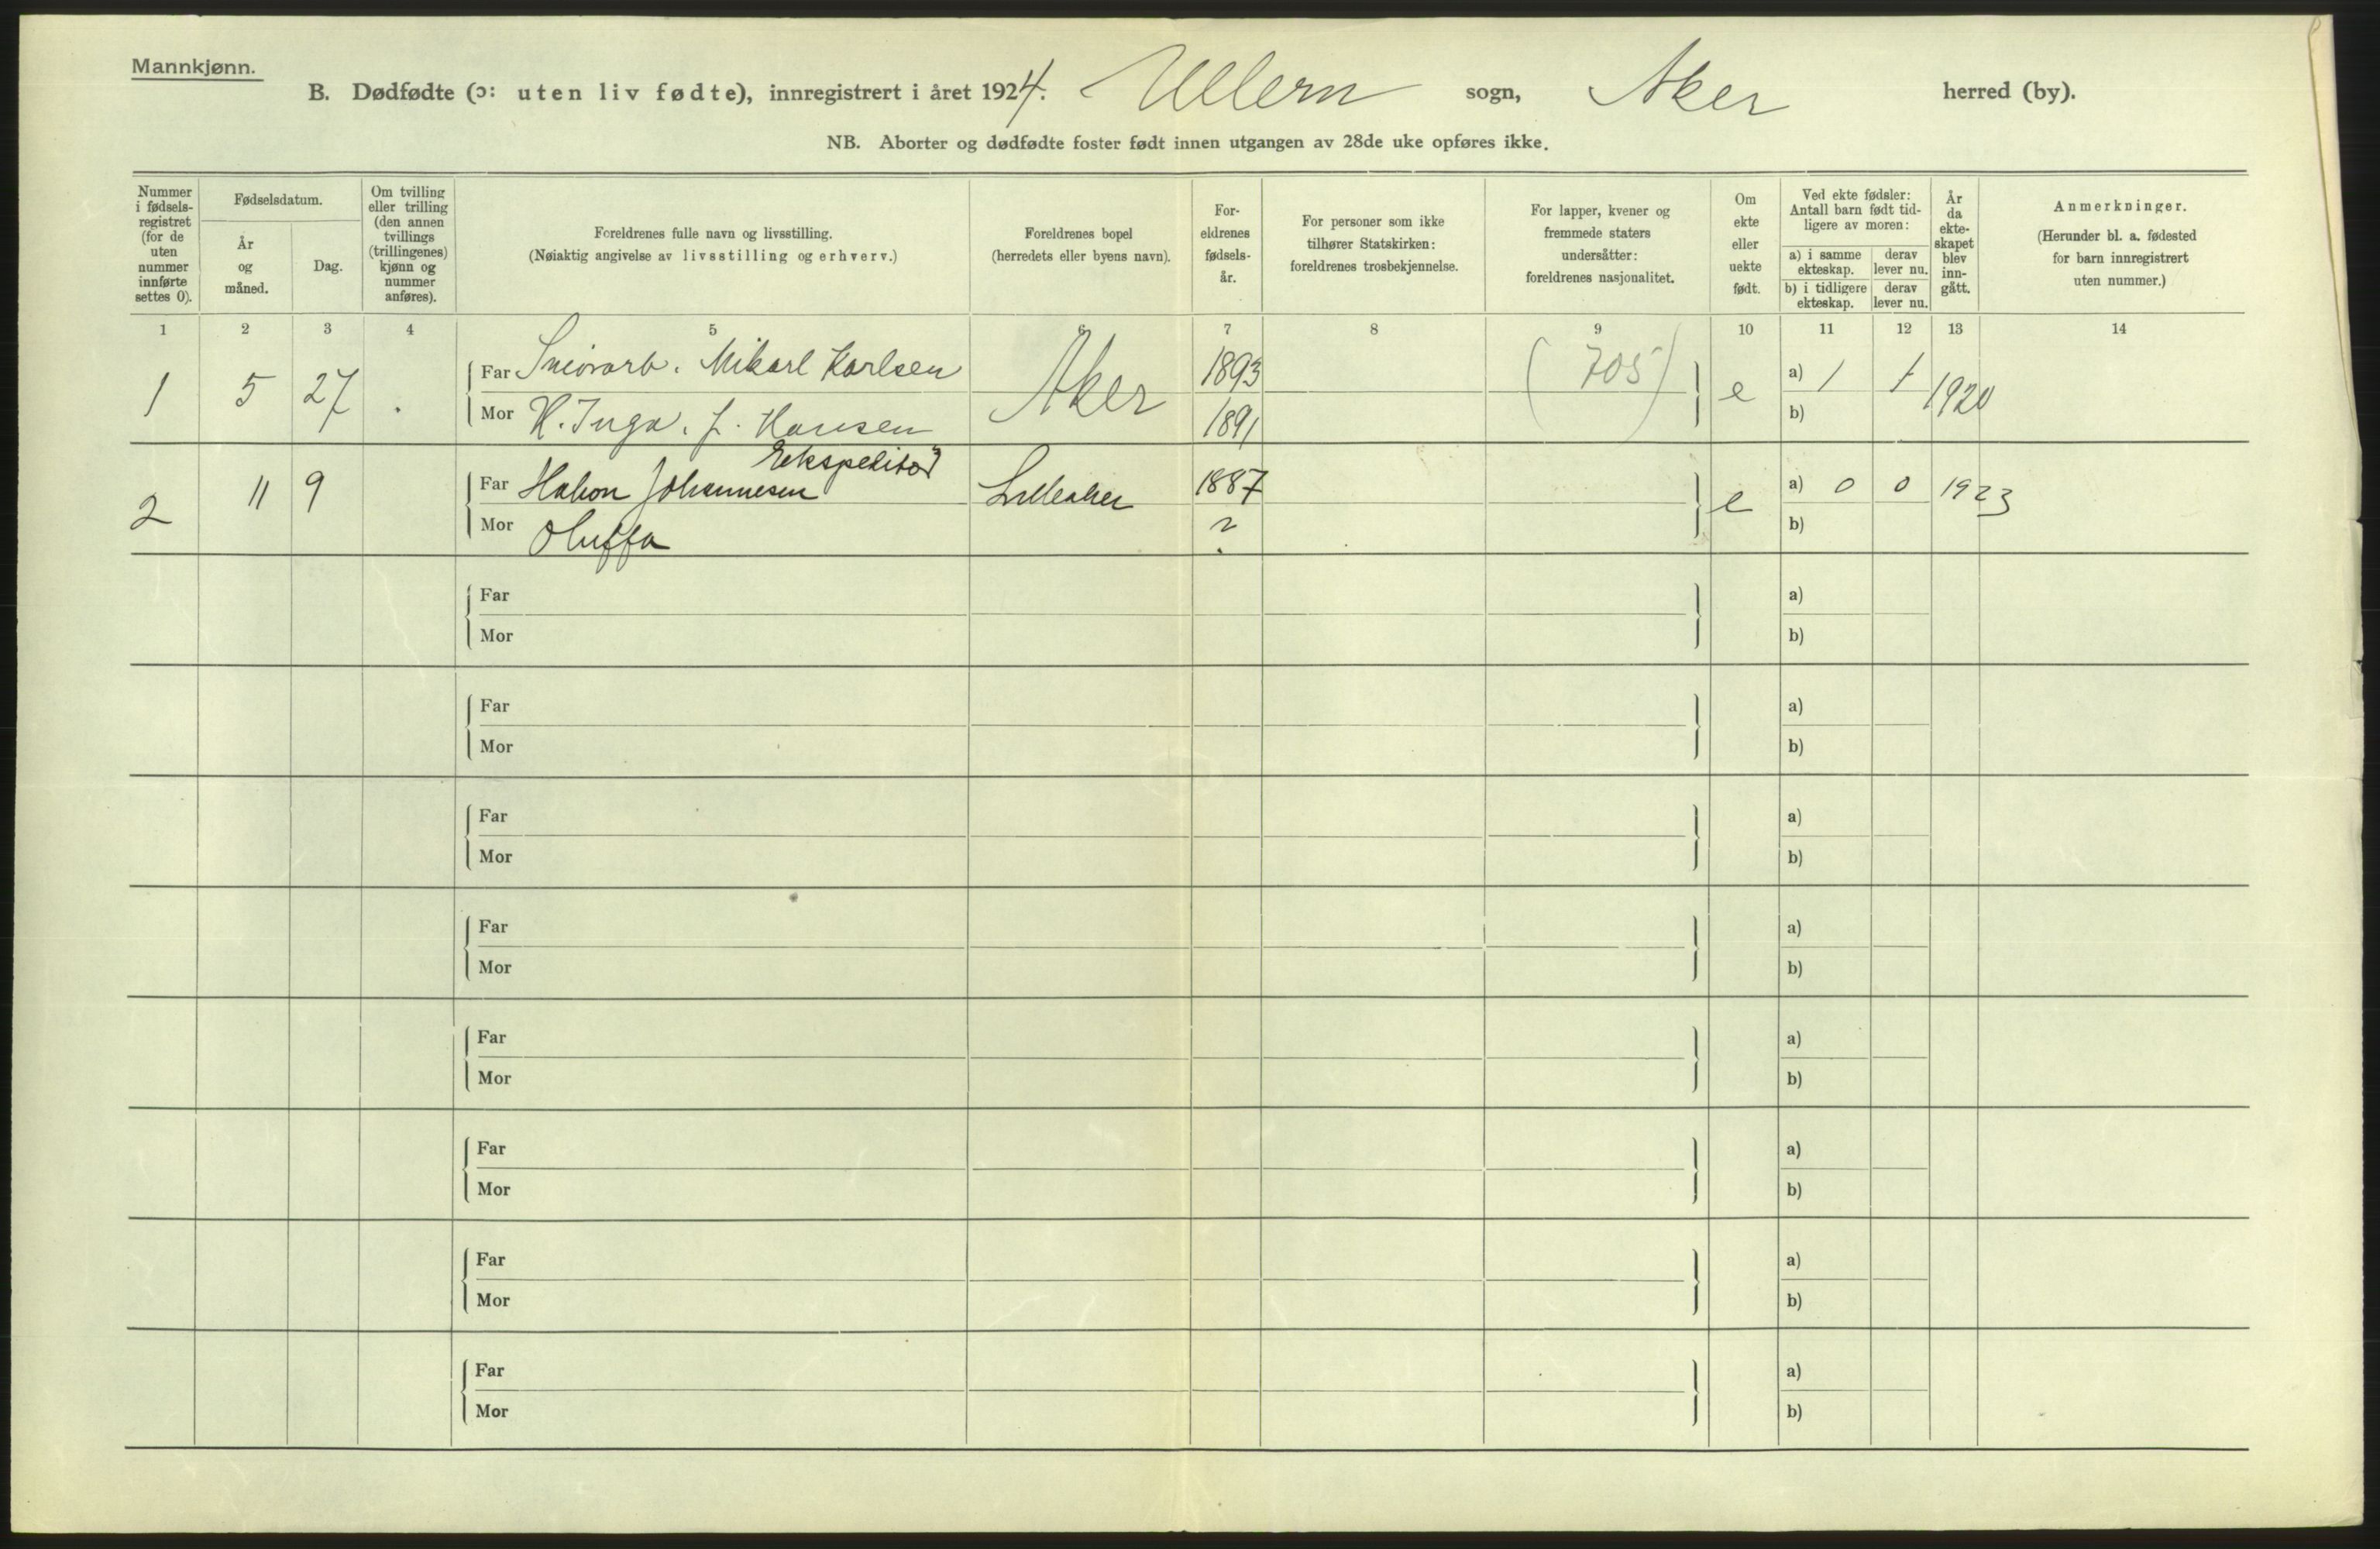 Mannkjønn.
B. Dødfødte (ɔ: uten liv fødte), innregistrert i året 1924. Ullern sogn, Aker herred (by).
NB. Aborter og dødfødte foster født innen utgangen av 28de uke opføres ikke.
Nummer i fødsels-registret (for de uten nummer innførte settes 0).
Fødselsdatum.
År og måned.
Dag.
Om tvilling eller trilling (den annen tvillings (trillingenes) kjønn og nummer anføres).
Foreldrenes fulle navn og livsstilling.
(Nøiaktig angivelse av livsstilling og erhverv.)
Foreldrenes bopel
(herredets eller byens navn).
For-eldrenes fødsels-år.
For personer som ikke tilhører Statskirken: foreldrenes trosbekjennelse.
For lapper, kvener og fremmede staters undersåtter: foreldrenes nasjonalitet.
Om ekte eller uekte født.
Ved ekte fødsler: Antall barn født tid-ligere av moren:
a) i samme ekteskap.
derav lever nu.
b) i tidligere ekteskap.
derav lever nu.
År da ekte-skapet blev inn-gått.
Anmerkninger.
(Herunder bl. a. fødested for barn innregistrert uten nummer.)
1 2 3 4 5 6 7 8 9 10 11 12 13 14
1 5 27 Far Mikarl Karlsen Aker 1893 (705) e a) 1 1 1920
Mor K. Inga. J. Hansen 1891 b)
Ekspeditør
2 11 9 Far Hakon Johannesen Lilleaker 1887 e a) 0 0 1923
Mor Oluffa ? b)
Far a)
Mor b)
Far a)
Mor b)
Far a)
Mor b)
Far a)
Mor b)
Far a)
Mor b)
Far a)
Mor b)
Far a)
Mor b)
Far a)
Mor b)